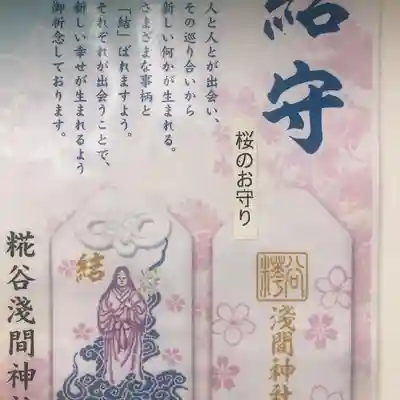 結守
人と人とが出会い、
その巡り合いから
新しい何かが生まれる。
さまざまな事柄と
「結」ばれますよう。
それぞれが出会うことで、
新しい幸せが生まれるよう
御祈念しております。
桜のお守り
糀谷淺間神社
結
淺間神社